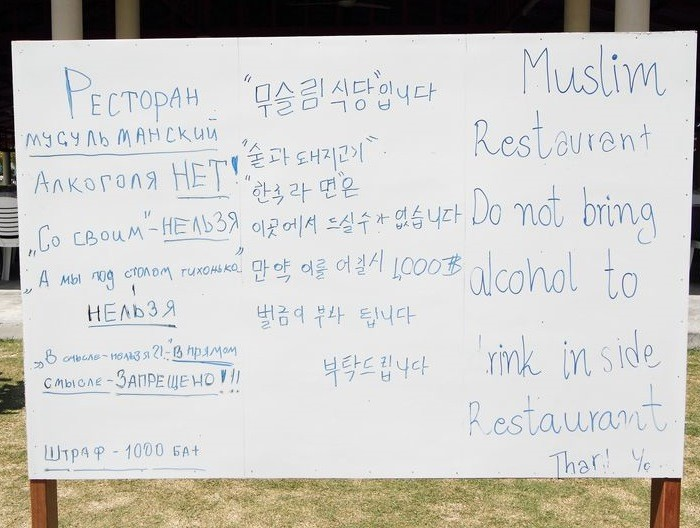 Ресторан
мусульманский
Алкоголя НЕТ!
„Со своим" - НЕЛЬЗЯ
„А мы под столом тихонько"
НЕЛЬЗЯ
„В смысле - нельзя?!" - В прямом
смысле - ЗАПРЕЩЕНО!!!
Штраф - 1000 бат
"무슬림 식당"입니다
"술과 돼지고기"
"한국 라면"은
이곳에서 드실수가 없습니다
만약 이를 어길시 1,000฿
벌금이 부과 됩니다
부탁드립니다
Muslim
Restaurant
Do not bring
alcohol to
rink inside
Restaurant